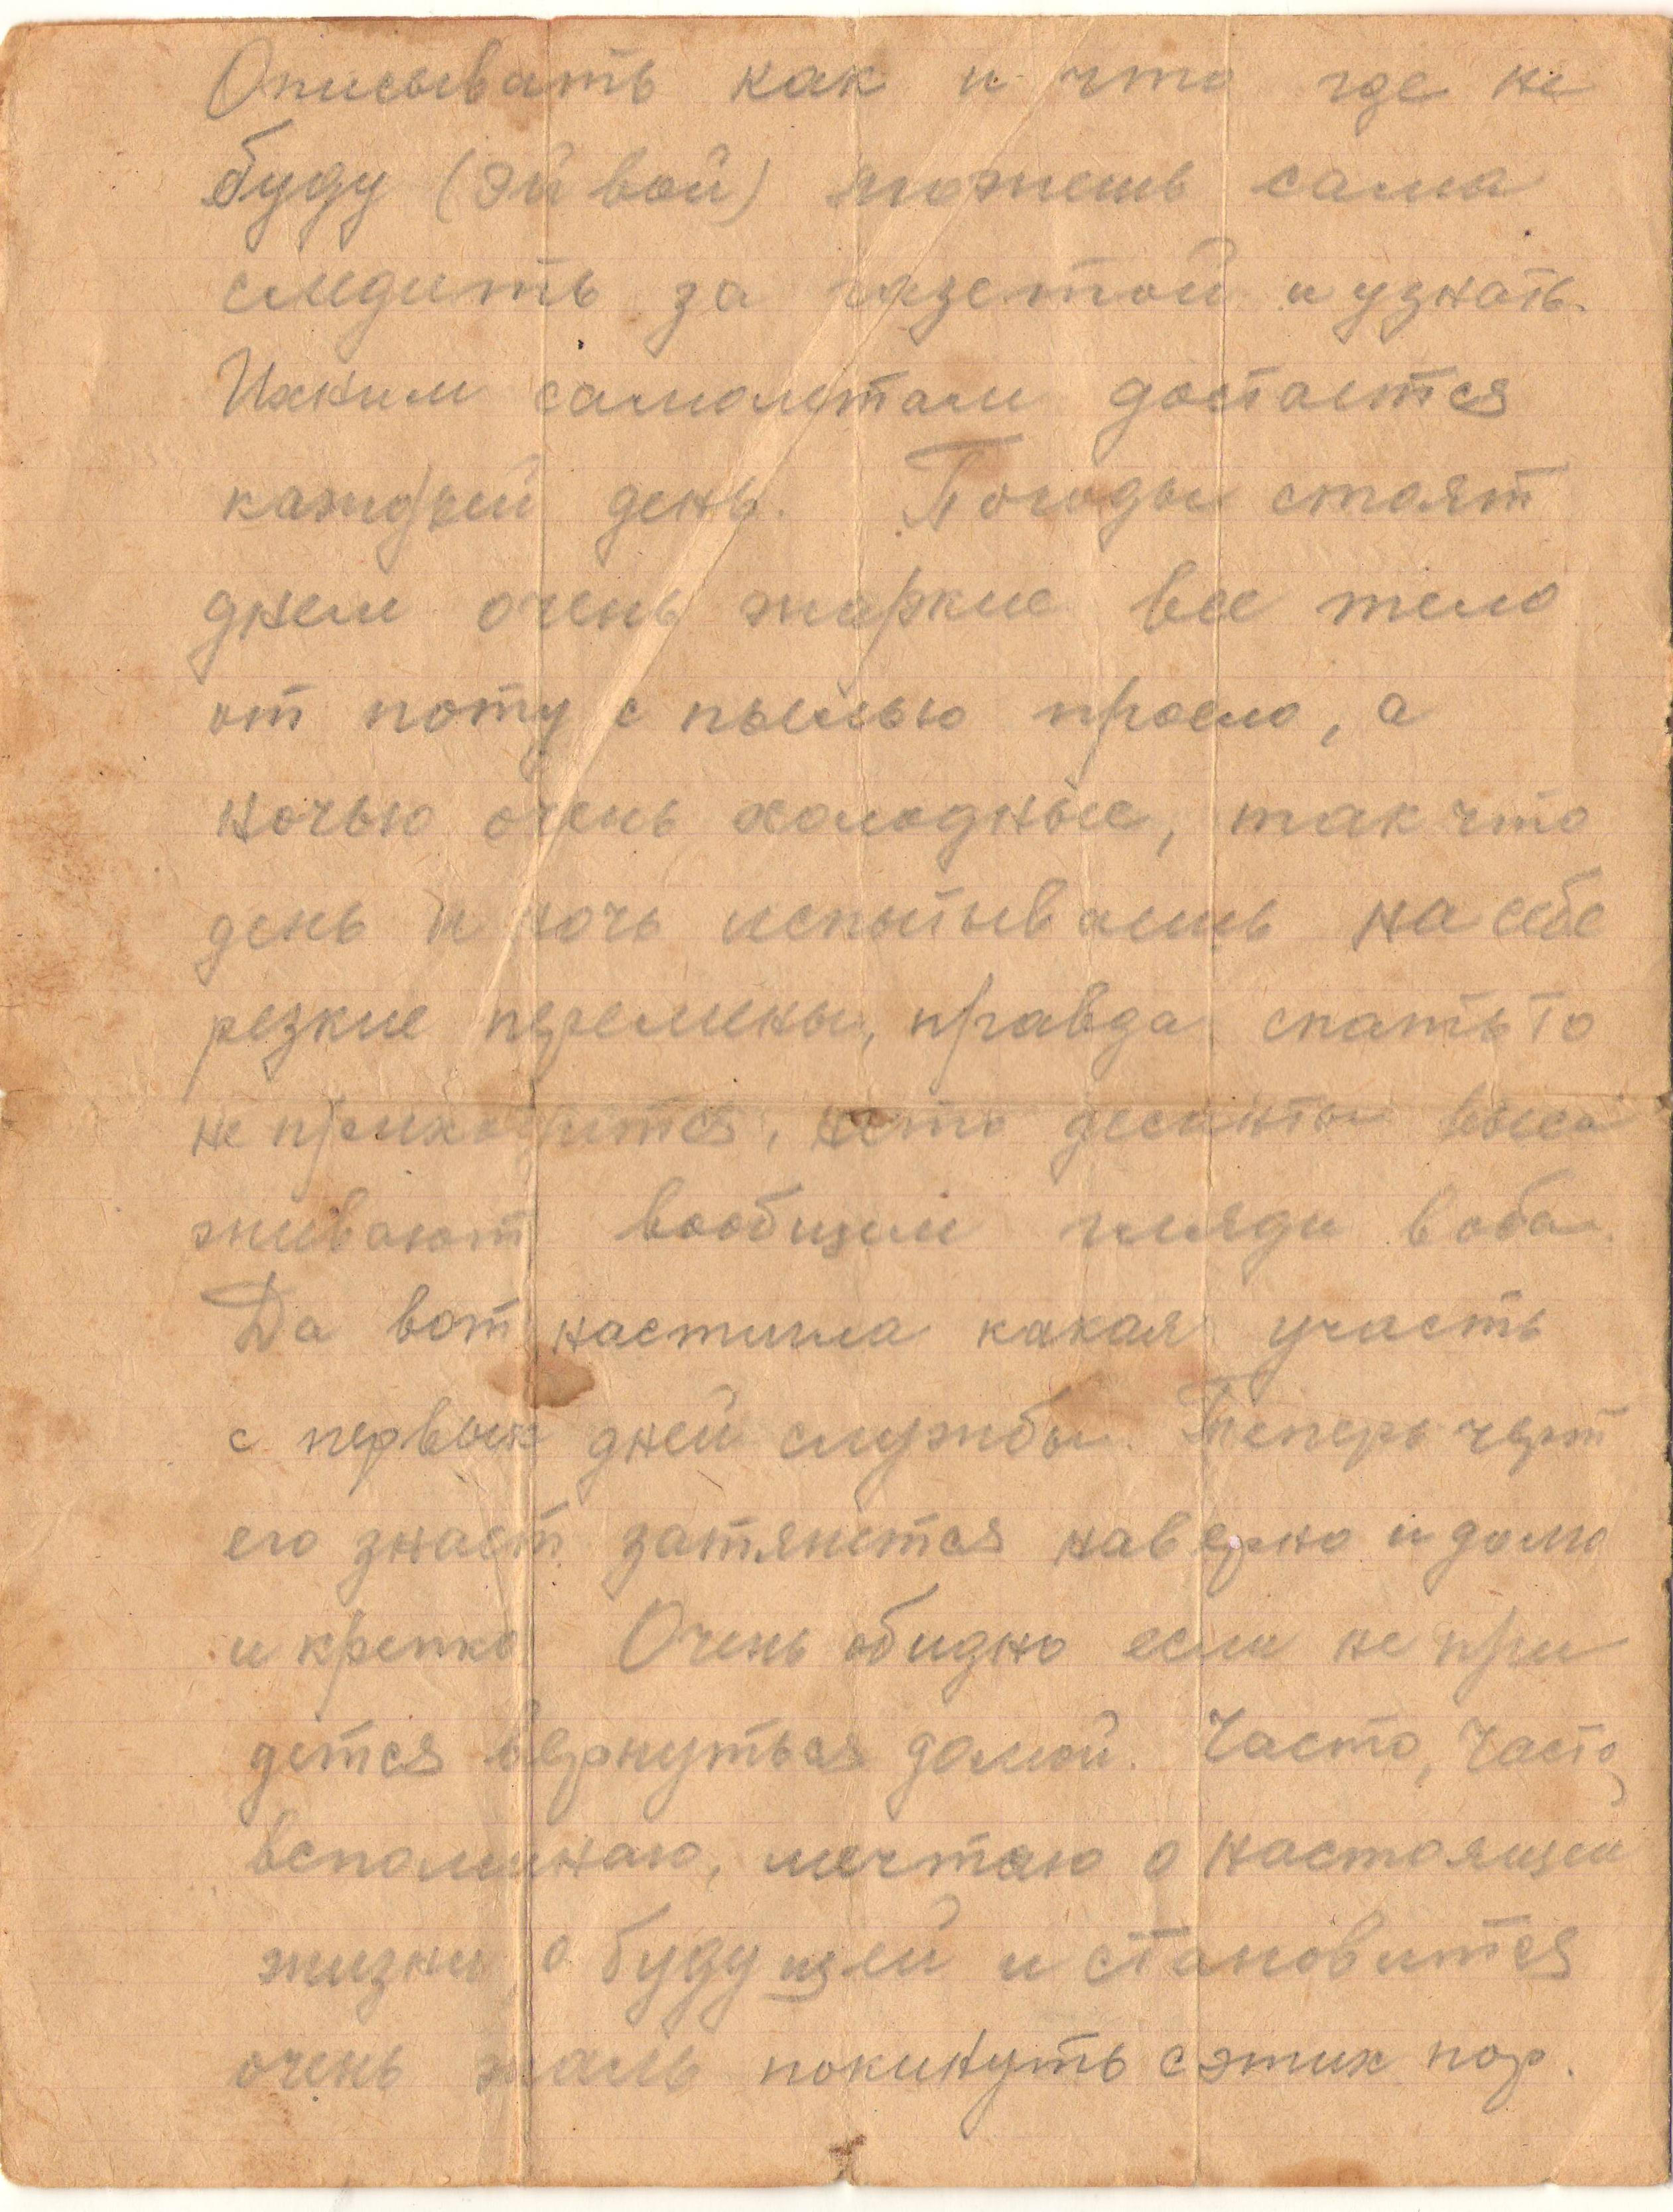 Описывать как и что где не
буду (эй вой) можешь сама
следить за газетой и узнать.
Ихним самолетам достается
каждый день. Погоды стоят
днем очень жаркие все тело
от поту с пылью проело, а
ночью очень холодные, так что
день и ночь испытываешь на себе
резкие перемены, правда спать то
не приходится, десанты выса
живают вообщем гляди в оба.
Да вот настигла какая участь
с первых дней службы. Теперь черт
его знает затянется наверно и долго
и крепко Очень обидно если не при
дется вернуться домой. Часто, часто
вспоминаю, мечтаю о настоящей
жизни о будущей и становится
очень жаль покинуть с этих пор.